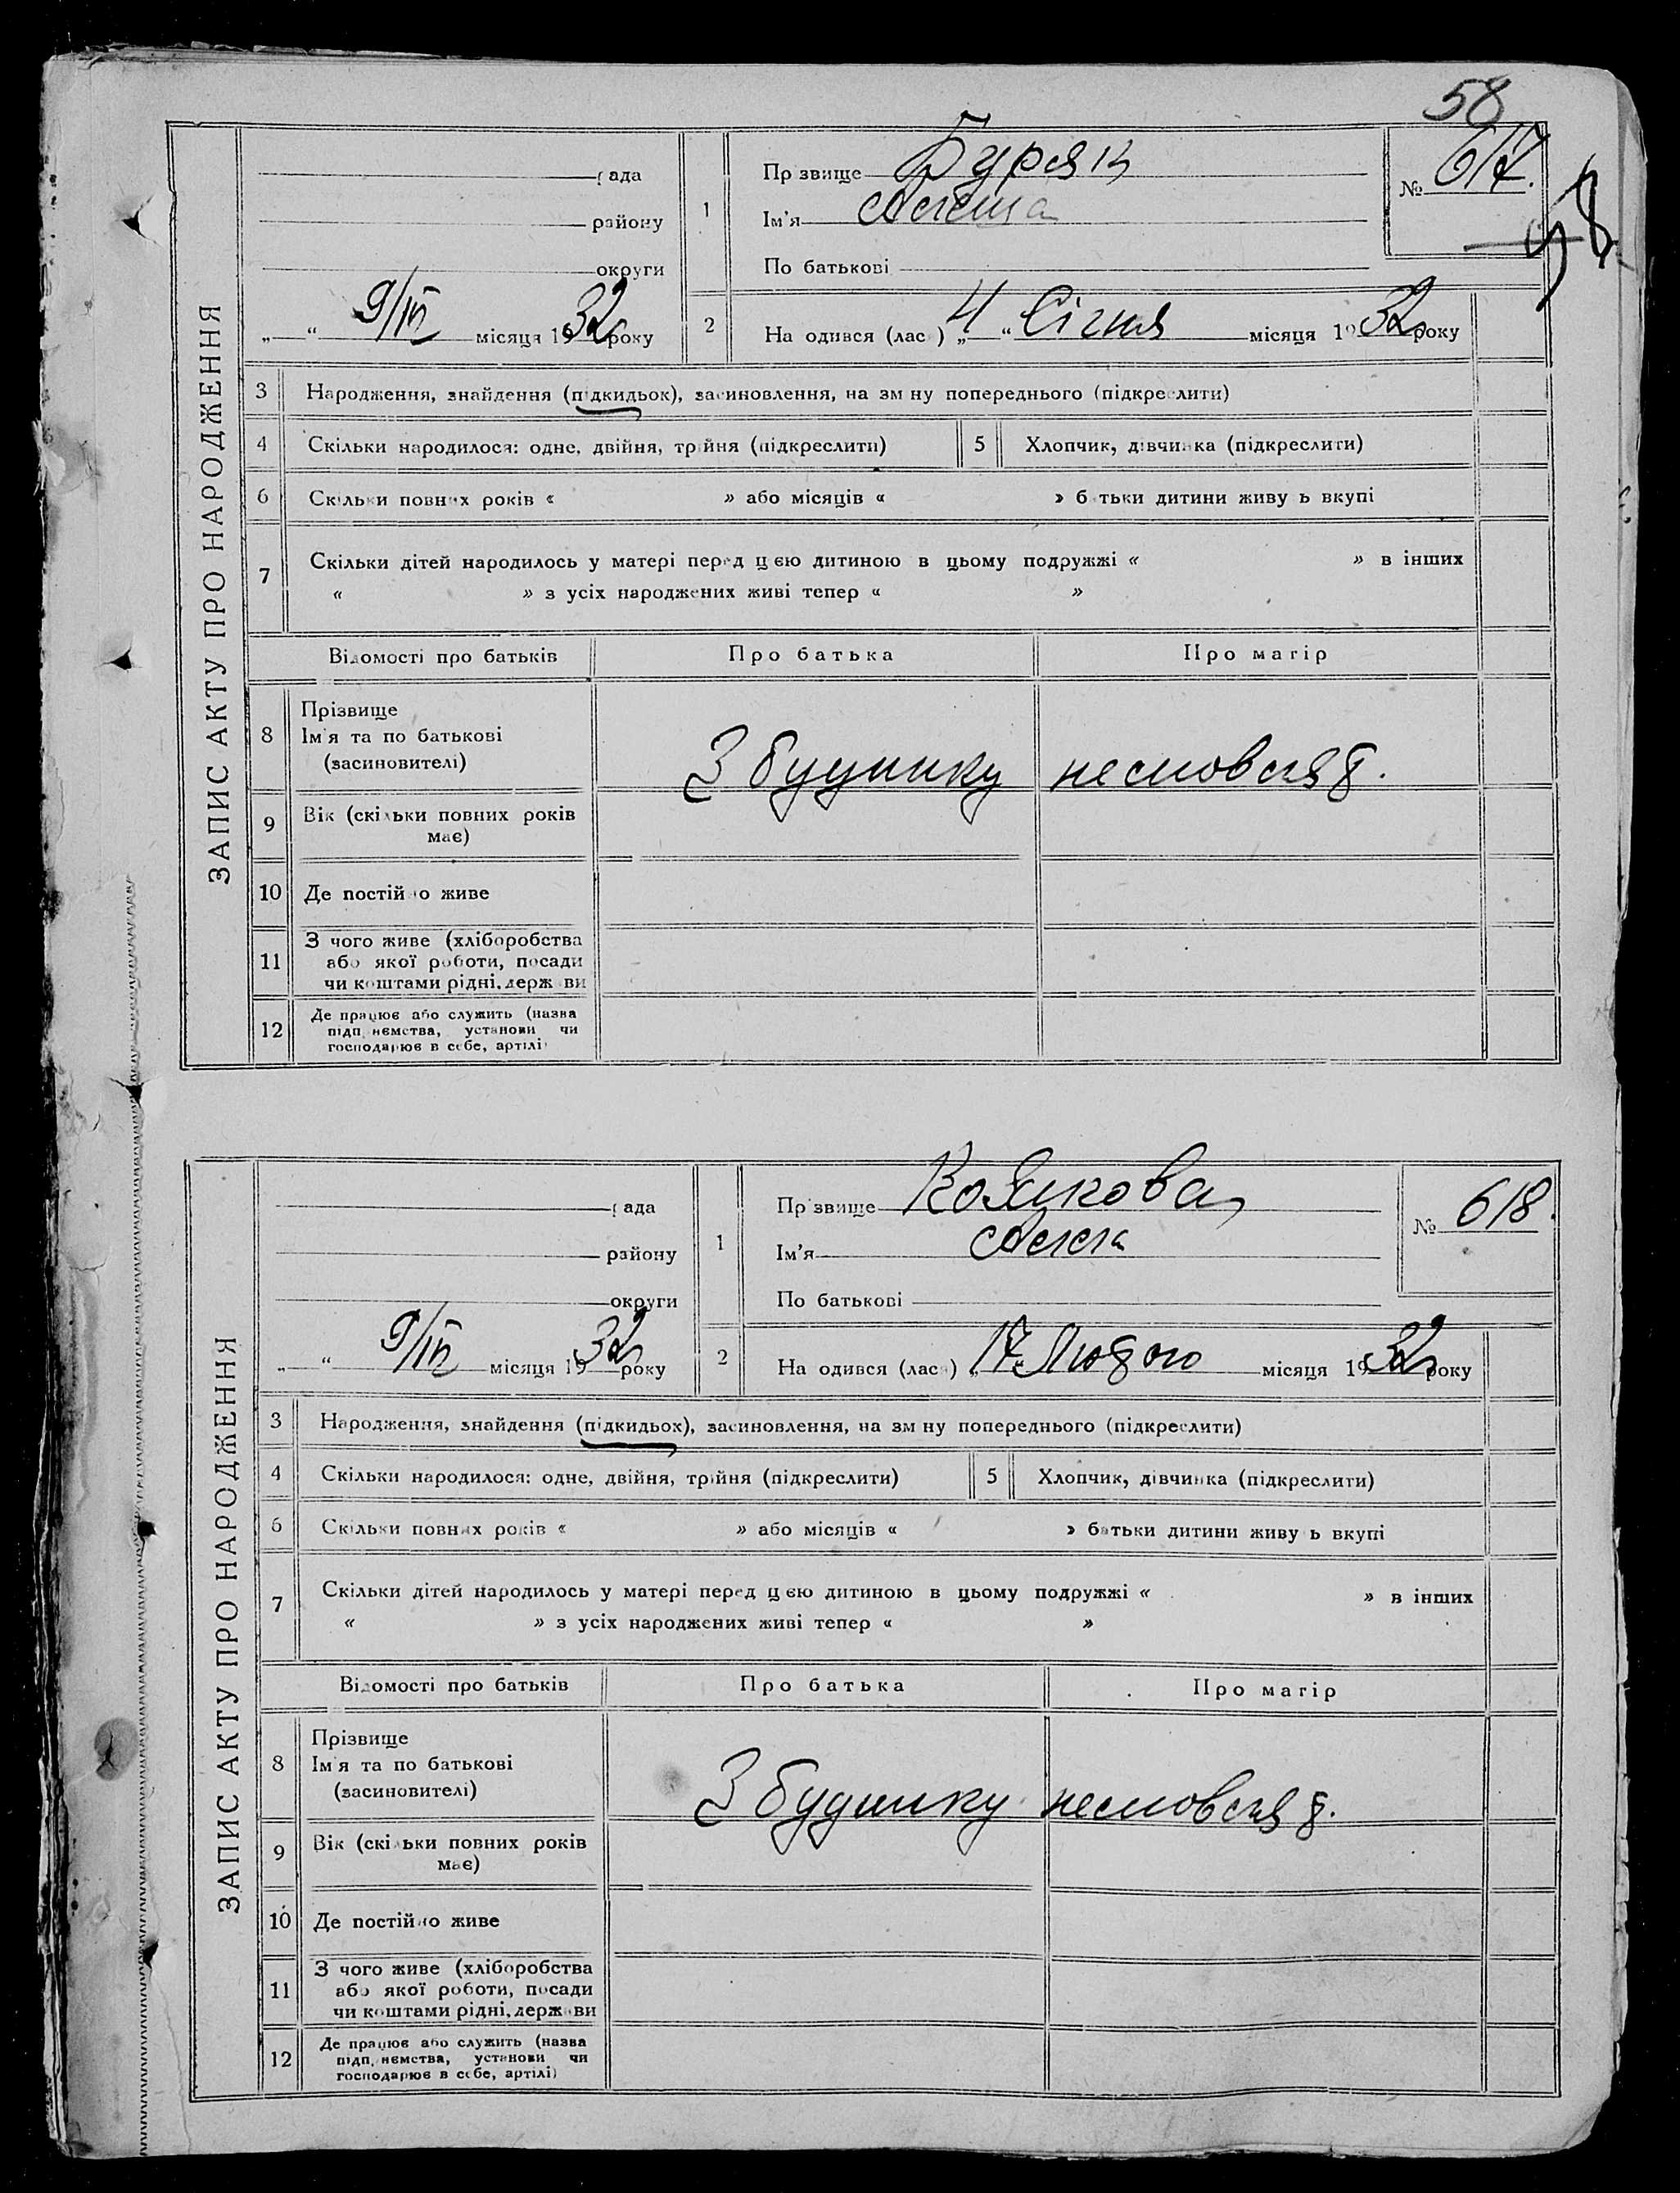 58
ЗАПИС АКТУ ПРО НАРОДЖЕННЯ
рада
району
округи
„ “ 9/III місяця 1932 року
1
Прізвище Буряк
Ім'я
По батькові
№ 617.
58
2
На одився (лас ) „4“ Січня місяця 1932 року
3 Народження, знайдення (підкидьок), засиновлення, на зм ну попереднього (підкреслити)
4 Скільки народилося: одне, двійня, трійня (підкреслити) 5 Хлопчик, дівчинка (підкреслити)
6 Скільки повних років « » або місяців « » батьки дитини живу ь вкупі
7 Скільки дітей народилось у матері перед цією дитиною в цьому подружжі « » в інших
« » з усіх народжених живі тепер « »
Відомості про батьків Про батька Про матір
8 Прізвище
Ім'я та по батькові
(засиновителі)
З будинку немовлят.
9 Вік (скільки повних років
має)
10 Де постійно живе
11 З чого живе (хліборобства
або якої роботи, посади
чи коштами рідні, держави
12 Де працює або служить (назва
підп. ємства, установи чи
господарює в себе, артілі)
ЗАПИС АКТУ ПРО НАРОДЖЕННЯ
рада
району
округи
„ “ 9/III місяця 1932 року
1
Прізвище
Ім'я Анна
По батькові
№ 618.
2
На одився (лас ) „17 Лютого місяця 1932 року
3 Народження, знайдення (підкидьох), засиновлення, на зм ну попереднього (підкреслити)
4 Скільки народилося: одне, двійня, трійня (підкреслити) 5 Хлопчик, дівчинка (підкреслити)
6 Скільки повних років « » або місяців « » батьки дитини живу ь вкупі
7 Скільки дітей народилось у матері перед цією дитиною в цьому подружжі « » в інших
« » з усіх народжених живі тепер « »
Відомості про батьків Про батька Про матір
8 Прізвище
Ім'я та по батькові
(засиновителі)
З будинку немовлят.
9 Вік (скільки повних років
має)
10 Де постійно живе
11 З чого живе (хліборобства
або якої роботи, посади
чи коштами рідні, держави
12 Де працює або служить (назва
підп. ємства, установи чи
господарює в себе, артілі)